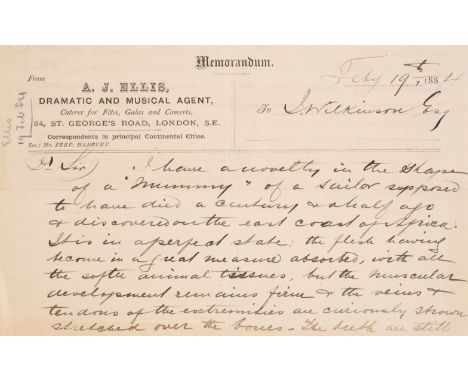 Memorandum.
From
A. J. ELLIS,
DRAMATIC AND MUSICAL AGENT,
Caterer for Fêtes, Galas and Concerts,
84, ST. GEORGE'S ROAD, LONDON, S.E.
Correspondents in principal Continental Cities.
Sec: Mr. FRED. HANBURY.
Ellis
19 Feb 84
Feby 19th 1884
To J. Wilkinson Esq
Dr Sir) I have a novelty in the shape
of a "Mummy" of a Sailor supposed
to have died a century & a half ago
& discovered on the east coast of Africa.
It is in a perfect state; the flesh having
become in a great measure absorbed, with all
the softer animal tissues, but the muscular
development remains firm & the veins &
tendons of the extremities are curiously shown
stretched over the bones - The teeth are still